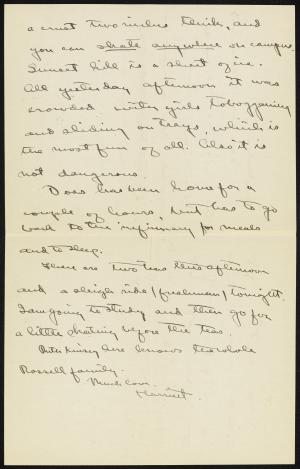 a crust two inches thick, and
you can skate anywhere on campus.
Sunset hill is a sheet of ice.
All yesterday afternoon it was
crowded with girls tobogganing
and sliding on trays, which is
the most fun of all. Also it is
not dangerous.
has been home for a
couple of hours, but has to go
back to the infirmary for meals
and to sleep.
There are two teas this afternoon
and a sleigh ride (freshman) tonight.
I am going to study and then go for
a little skating before the teas.
Ruth here knows the whole
Russell family.
Much love.
Harriet.